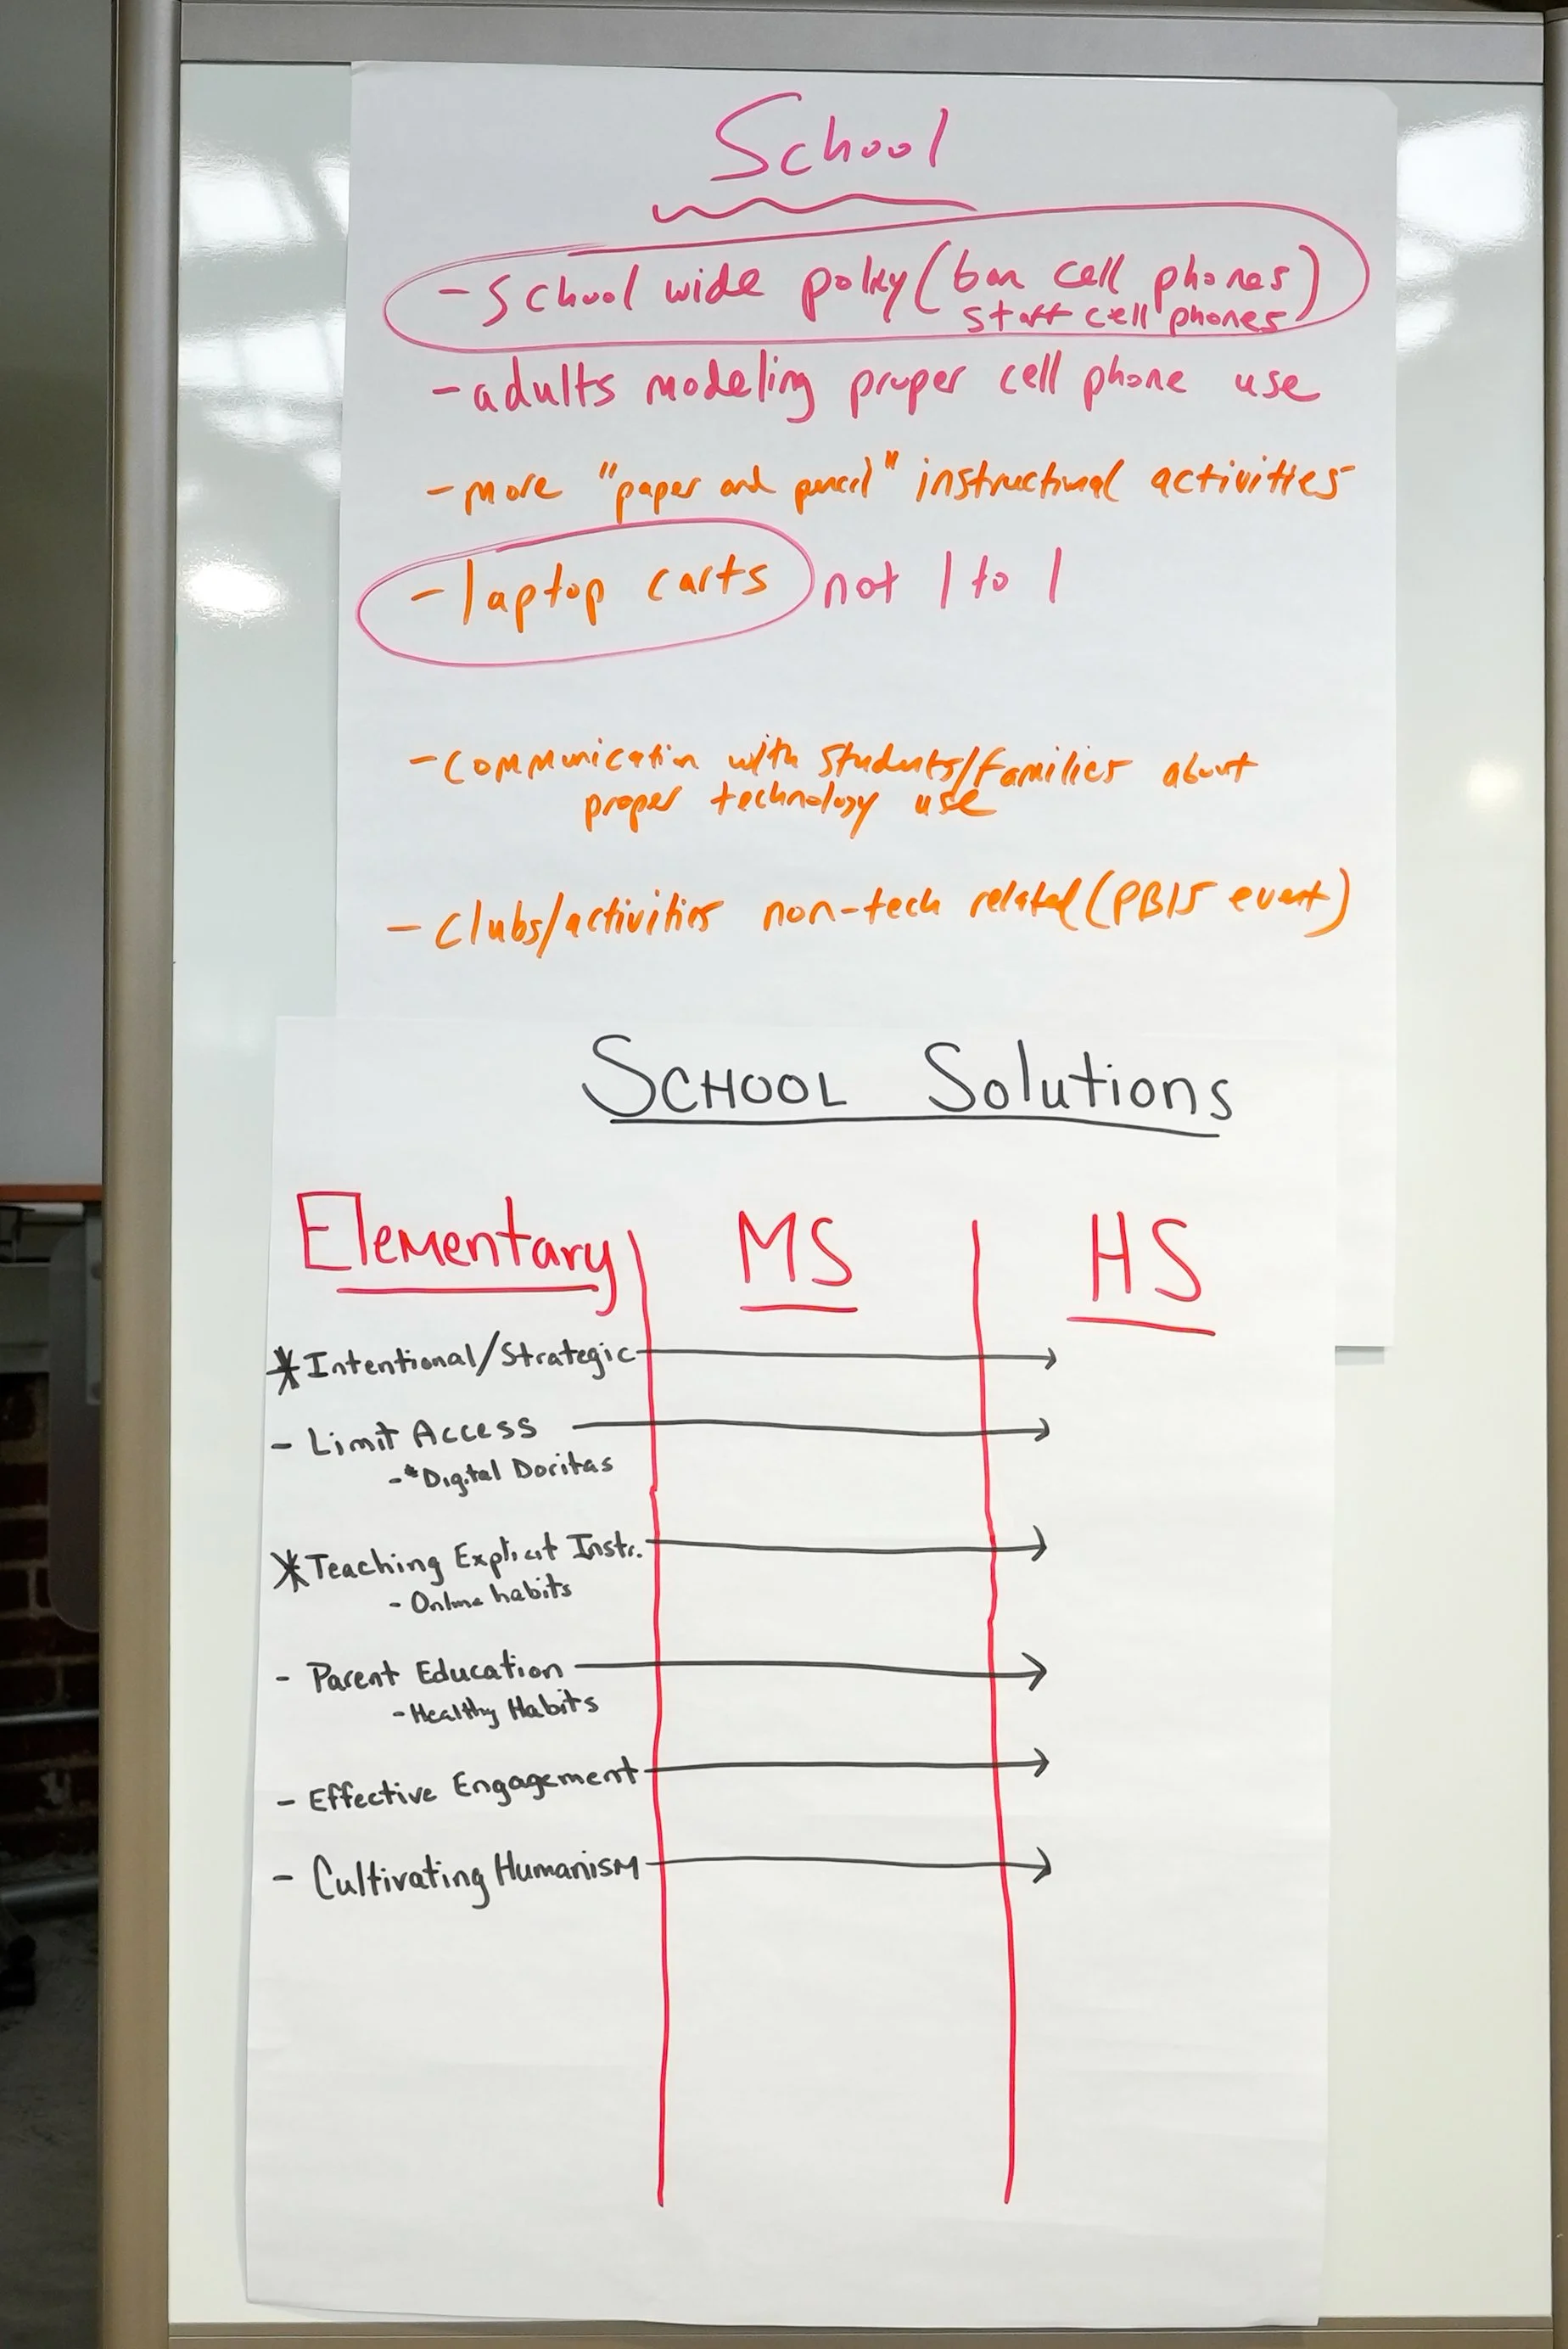 School
- School wide policy (ban cell phones)
staff cell phones
- adults modeling proper cell phone use
- more "paper and pencil" instructional activities
- laptop carts not 1 to 1
- Communication with students/families about
proper technology use
- Clubs/activities non-tech related (PBIS event)
SCHOOL Solutions
Elementary MS HS
* Intentional/Strategic
- Limit Access
- *Digital Doritas
* Teaching Explicit Instr.
- Online habits
- Parent Education
- Healthy Habits
- Effective Engagement
- Cultivating Humanism